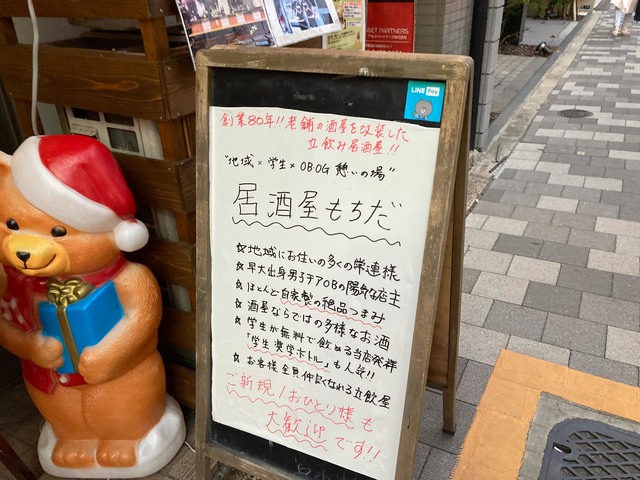 ASSET PARTNERS
LINE Pay
創業80年!!老舗の酒屋を改装した
立飲み居酒屋!!
"地域×学生×OBOG 憩いの場"
居酒屋もちだ
☆地域にお住いの多くの常連様
☆早大出身男子チアOBの陽気な店主
☆ほとんど自家製の絶品つまみ
☆酒屋ならではの多様なお酒
☆学生が無料で飲める当店発祥
「学生奨学ボトル」も人気!!
☆お客様全員仲良くなれる立飲屋
ご新規/おひとり様も
大歓迎です!!